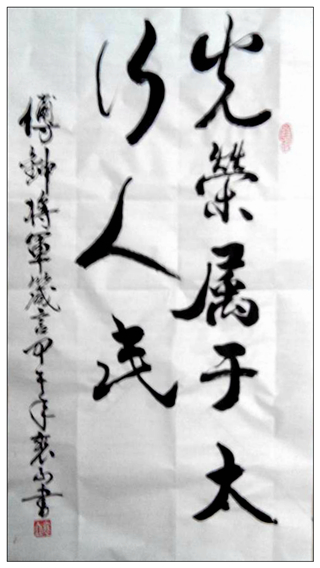 光榮属于太
行人民
傅鈡将軍箴言甲午年山書